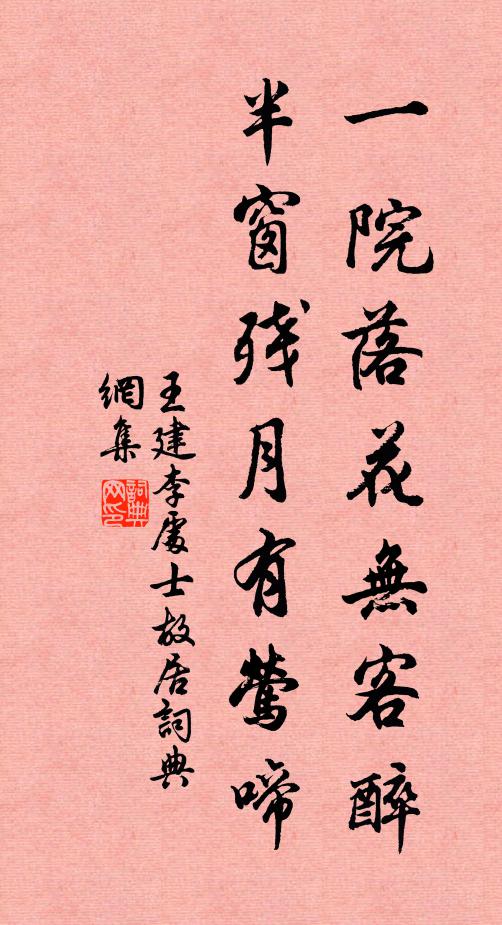 一院落花無客醉
半窗残月有鶯啼
王建李處士故居詞典
網集
詞典網印